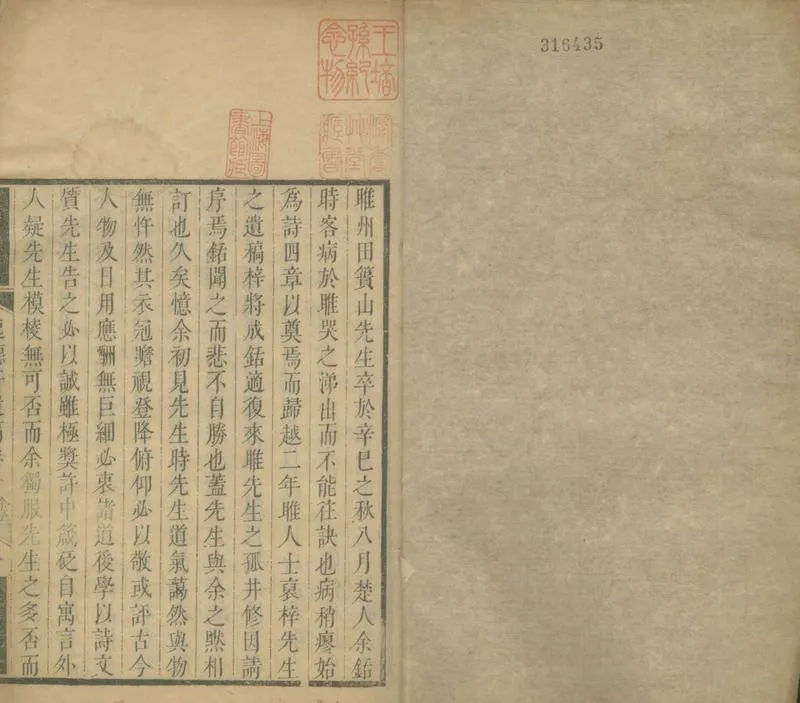 316435
王培
孫紀
念物
上海圖
書館藏
睢州田簣山先生卒於辛巳之秋八月楚人余銛
時客病於睢哭之涕出而不能往訣也病稍瘳始
為詩四章以奠焉而歸越二年睢人士裒梓先生
之遺稿梓將成銛適復來睢先生之孤井修因請
序焉銛聞之而悲不自勝也蓋先生與余之黙相
訂也久矣憶余初見先生時先生道氣藹然與物
無忤然其衣冠瞻視登降俯仰必以敬或評古今
人物及日用應酬無巨細必衷諸道後學以詩文
質先生告之必以誠雖極獎許中箴砭自寓言外
人疑先生模棱無可否而余獨服先生之多否而